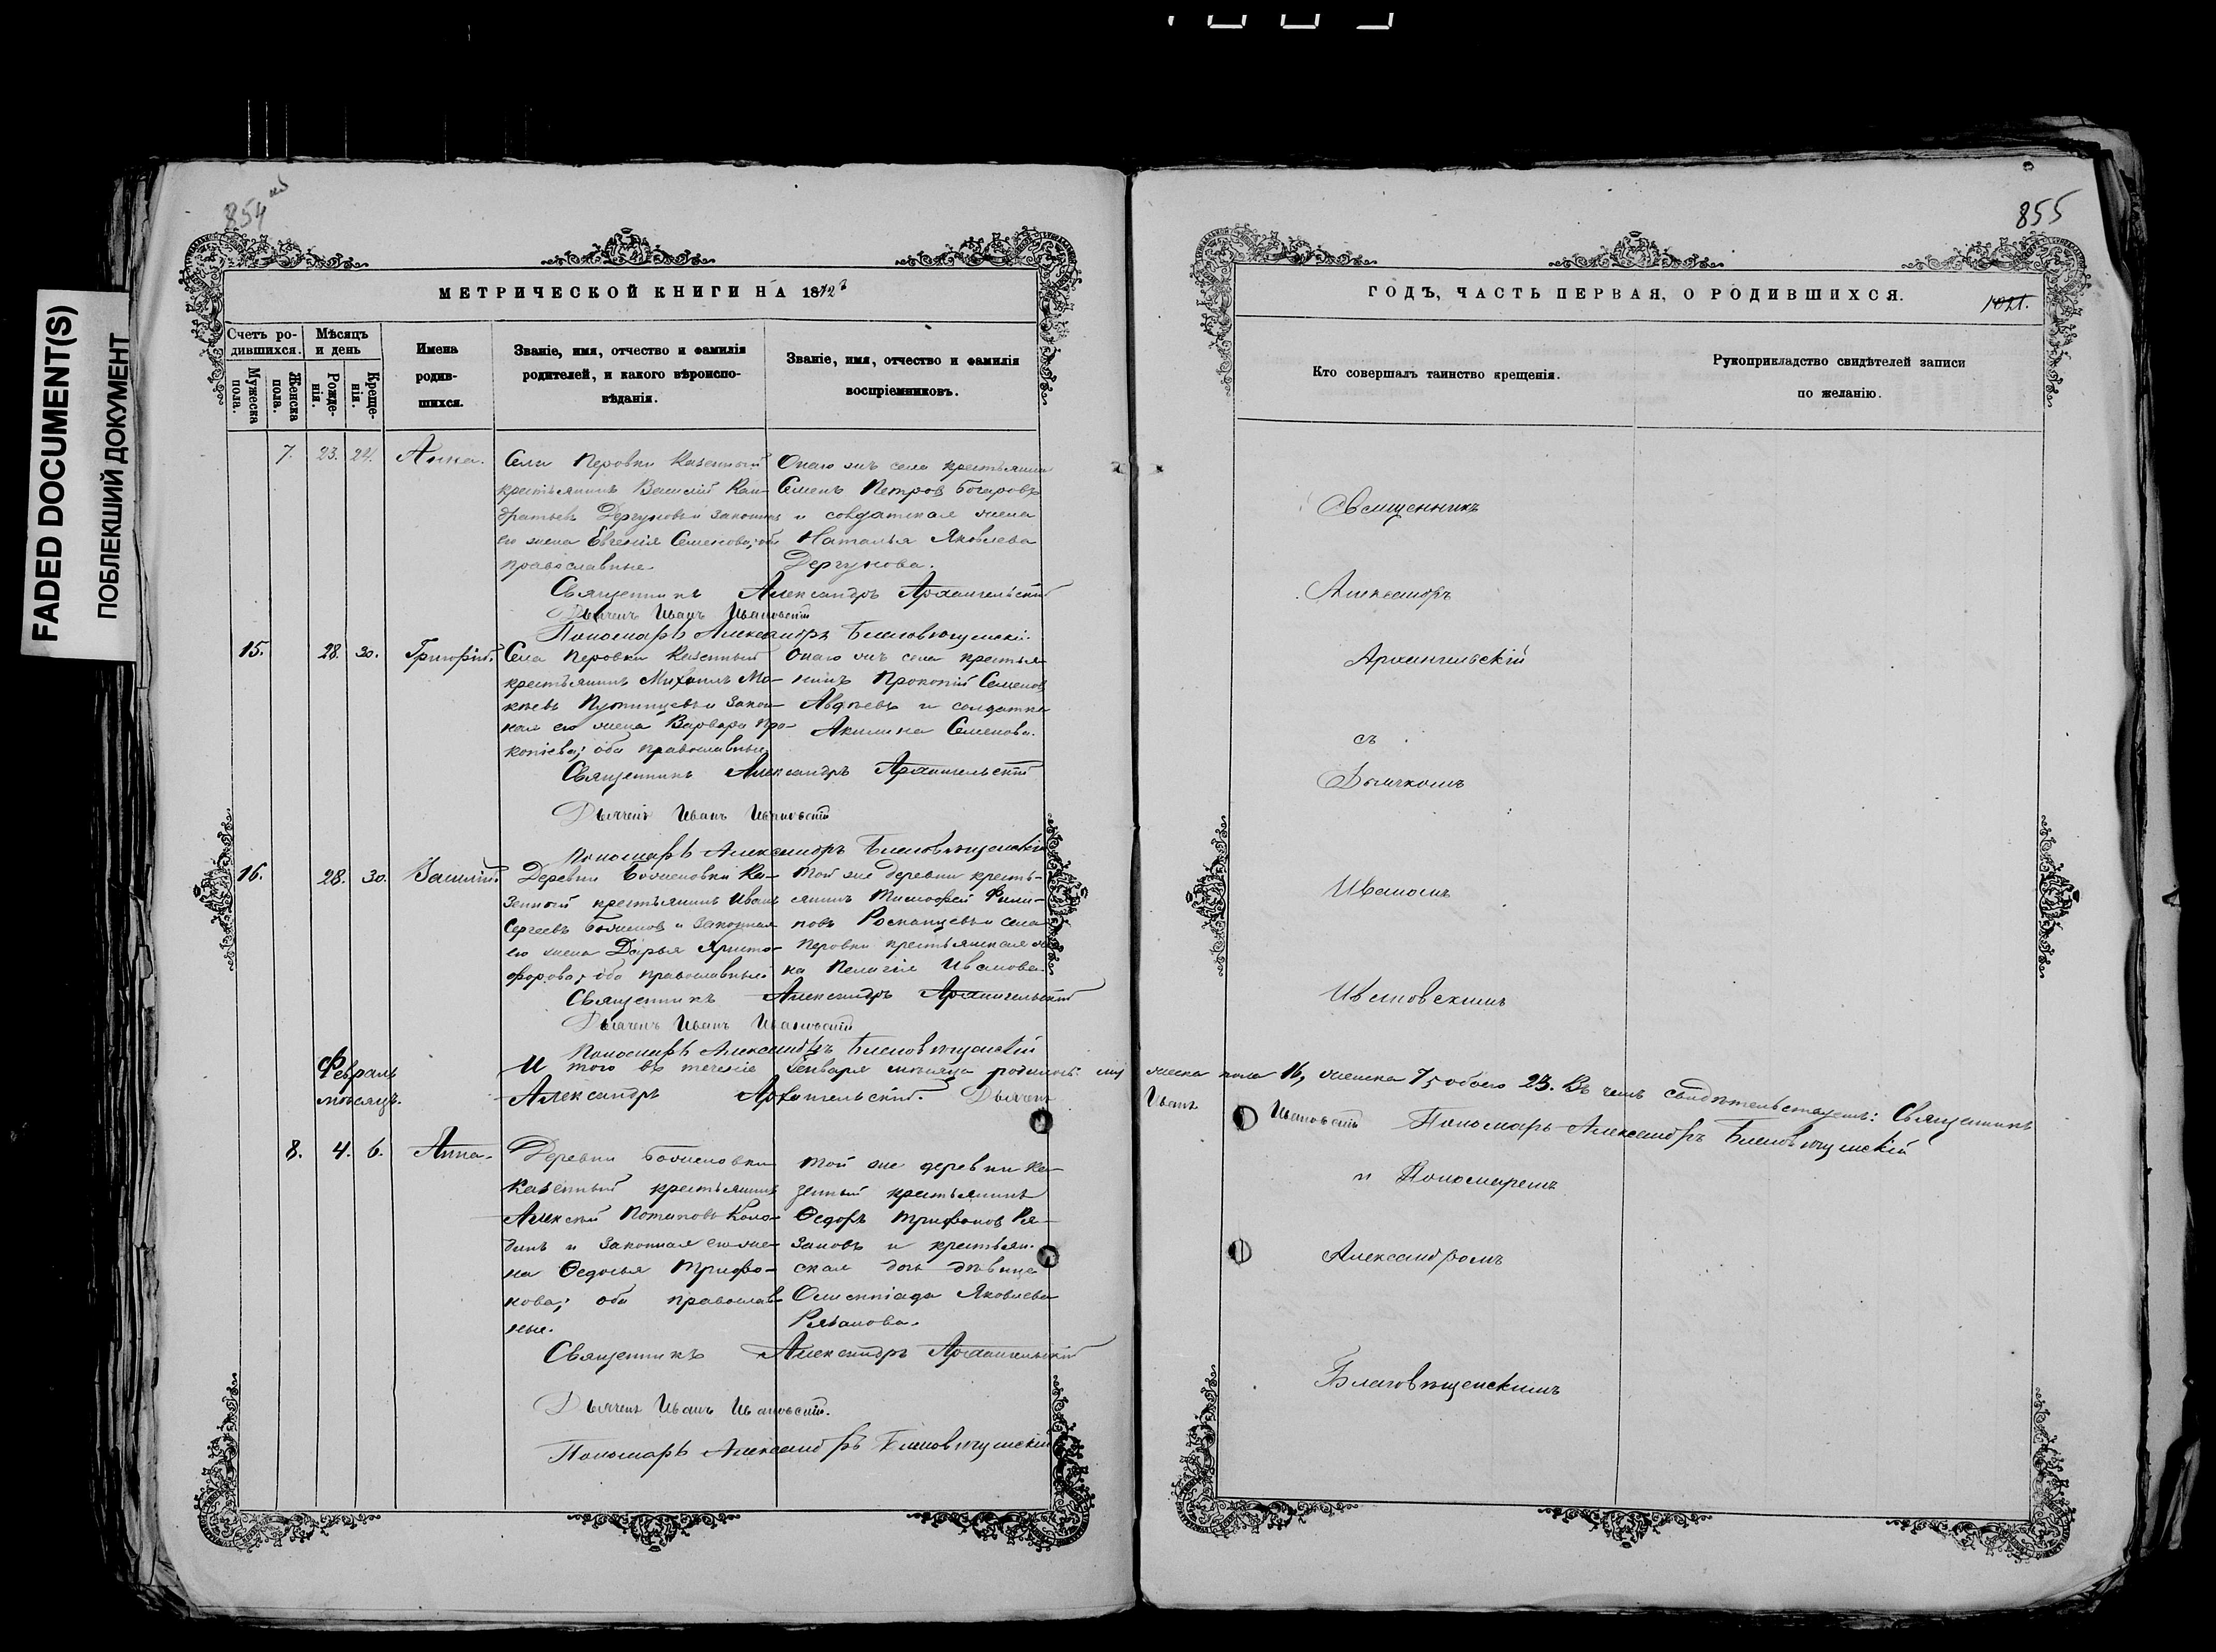 FADED DOCUMENT(S)
ПОБЛЕКШИЙ ДОКУМЕНТ
854 об
855
МЕТРИЧЕСКОЙ КНИГИ НА 1872
Счетъ родившихся.
Мужеска пола.
Женска пола.
Мѣсяцъ и день
Рожденія.
Крещенія.
Имена родившихся.
Званіе, имя, отчество и фамилія
родителей, и какого вѣроиспо-
вѣданія.
Званіе, имя, отчество и фамилія
воспріемниковъ.
7. 23. 24. Анна.
Села Перовки Казенный
крестьянинъ Василій Кон-
дратьевъ Дергуновъ и законная
его жена Евгенія Семенова; оба
православные.
Онаго жъ села крестьянинъ
Семенъ Петровъ
и солдатская жена
Наталья Яковлева
Дергунова.
Священникъ Александръ Архангельскій
Дьячекъ Иванъ Ивановскій
Пономарь Александръ Благовѣщенскій.
15. 28. 30. Григорій.
Села Перовки Казенный
крестьянинъ Михаилъ Мо-
кѣевъ и закон-
ная его жена Варвара Про-
копіева; оба православные
Онаго жъ села крестья-
нинъ Прокопій Семеновъ
Авдѣевъ и солдатка
Акилина Семенова.
Священникъ Александръ Архангельскій
Дьячекъ Иванъ Ивановскій
Пономарь Александръ Благовѣщенскій
16. 28. 30. Василій.
Деревни Ка-
зенный крестьянинъ Иванъ
Сергеевъ и законная
его жена Дарья Христо-
форова; оба православные
Той же деревни кресть-
янинъ Тимофей Фили-
повъ и села
Перовки крестьянская же-
на Пелагія Иванова
Священникъ Александръ Архангельскій
Дьячекъ Иванъ Ивановскій
Пономарь Александръ Благовѣщенскій
Февраль
мѣсяцъ.
И того въ теченіе Генваря мѣсяца родилось: муж
Александръ Архангельскій. Дьячекъ
8. 4. 6. Анна.
Деревни
Казенный крестьянинъ
Алексѣй Потаповъ Коло-
динъ и законная его же-
на Ѳедосья Трифо-
нова; оба православ-
ные.
Той же деревни Ка-
зенный крестьянинъ
Ѳедоръ Трифоновъ Ря-
зановъ и крестьян-
ская дочь дѣвица
Олимпіада Яковлева
Рязанова.
Священникъ Александръ Архангельскій
Дьячекъ Иванъ Ивановскій.
Пономарь Александръ Благовѣщенскій
ГОДЪ, ЧАСТЬ ПЕРВАЯ, О РОДИВШИХСЯ.
1021.
Кто совершалъ таинство крещенія.
Рукоприкладство свидѣтелей записи
по желанію.
Священникъ
Александръ
Архангельскій
съ
Дьячкомъ
Иваномъ
Ивановскимъ
жеска пола 16, женска 7, обоего 23. Въ чемъ свидѣтельствуемъ: Священникъ
Иванъ Ивановскій Пономарь Александръ Благовѣщенскій
и Пономаремъ
Александромъ
Благовѣщенскимъ